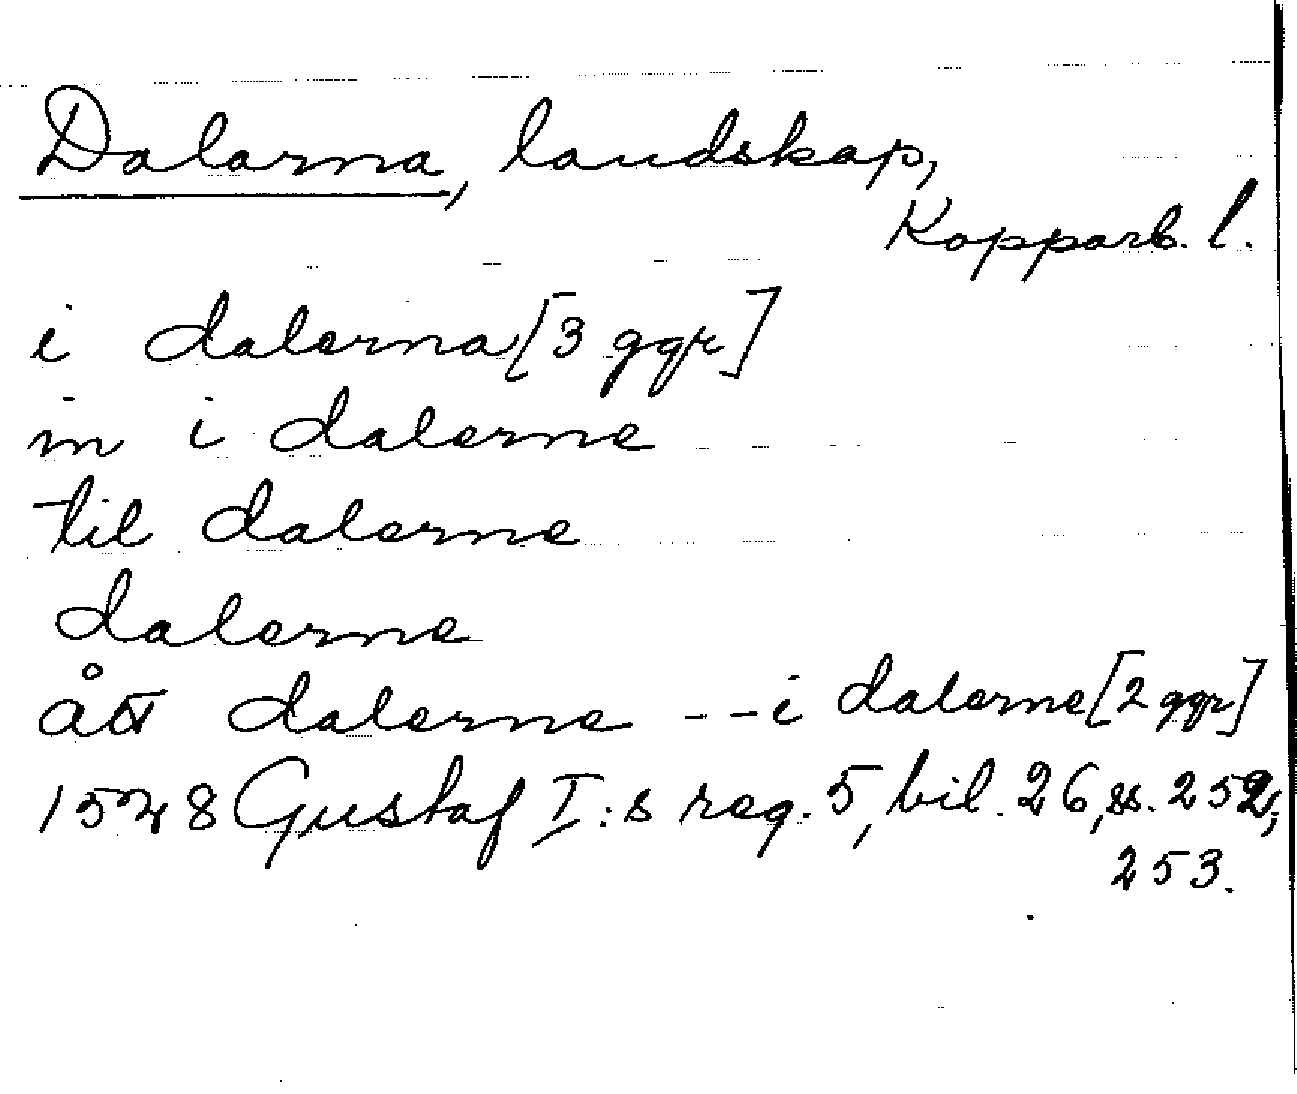 Dalarna, landskap,
Kopparb. l.
i dalerna [3 ggr]
in i dalerne
til dalerne
dalerne
ått dalerne - - i dalerne [2 ggr]
1528 Gustaf I:s reg. 5, bil. 26, ss. 252,
253.